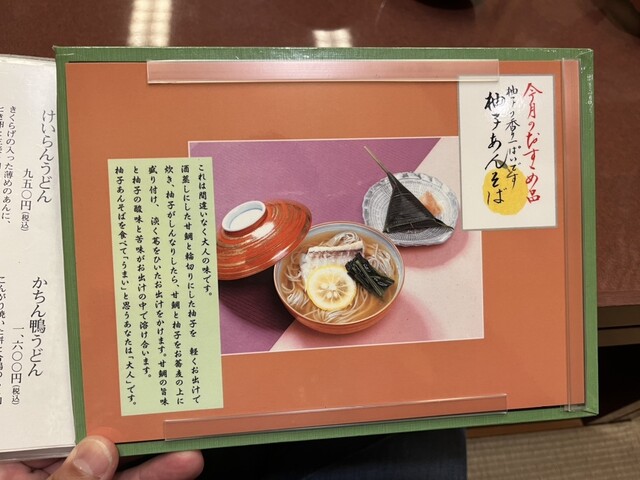 今月のおすすめ品
柚子の香りいっぱいです
柚子あんそば
これは間違いなく大人の味です。
酒蒸しにした甘鯛と輪切りにした柚子を 軽くお出汁で
炊き、柚子がしんなりしたら、甘鯛と柚子をお蕎麦の上に
盛り付け、淡く葛をひいたお出汁をかけます。甘鯛の旨味
と柚子の酸味と苦味がお出汁の中で溶け合います。
柚子あんそばを食べて「うまい」と思うあなたは「大人」です。
けいらんうどん
九五〇円(税込)
きくらげの入った薄めのあんに、
かちん鴨うどん
一、六〇〇円(税込)